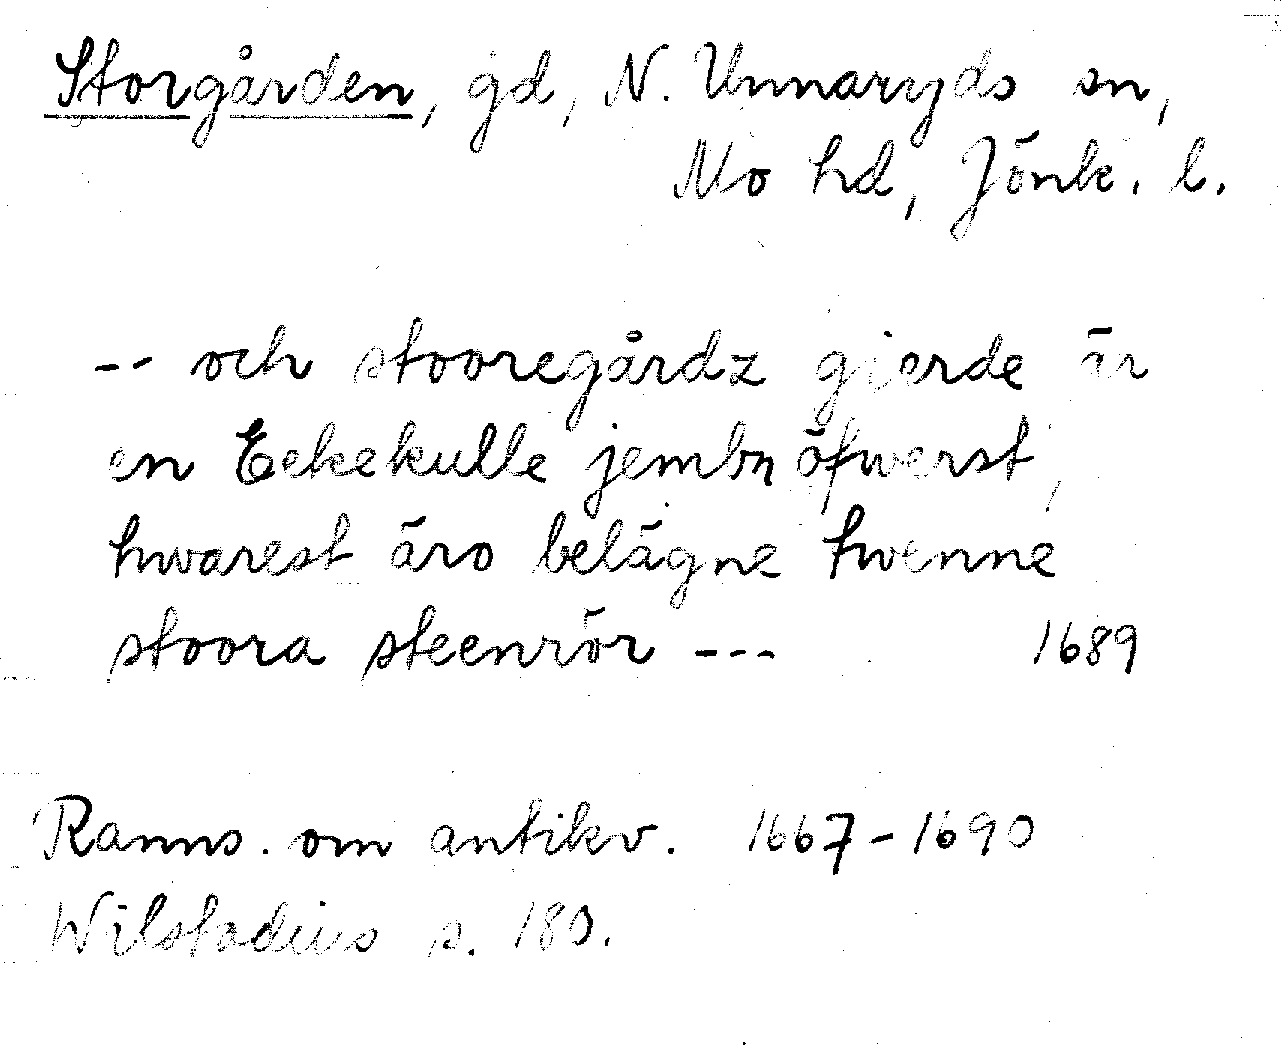 Storgården, gd, N. Unnaryds sn,
Mo hd, Jönk. l.
-- och stooregårdz gierde är
en Eekekulle jembn öfwerst,
hwarest äro belägne twenne
stoora steenrör --- 1689
Ranns. om antikv. 1667-1690
Wilstadius s. 180.